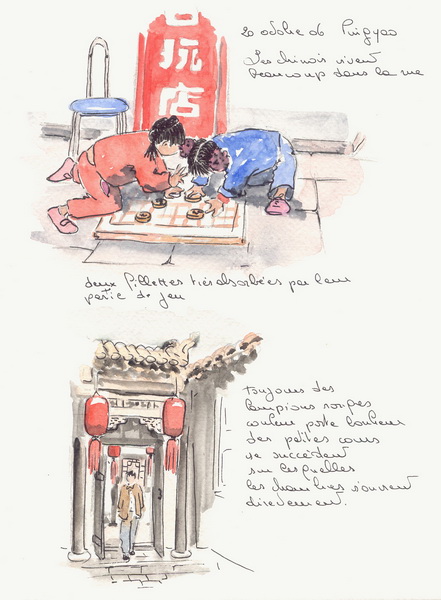 20 octobre 06 Pingyao
Les chinois vivent
beaucoup dans la rue
玩
店
deux fillettes très absorbées par leur
partie de jeu
toujours des
lampions rouges
couleur porte bonheur
des petites cours
se succèdent
sur lesquelles
les chambres s'ouvrent
directement.